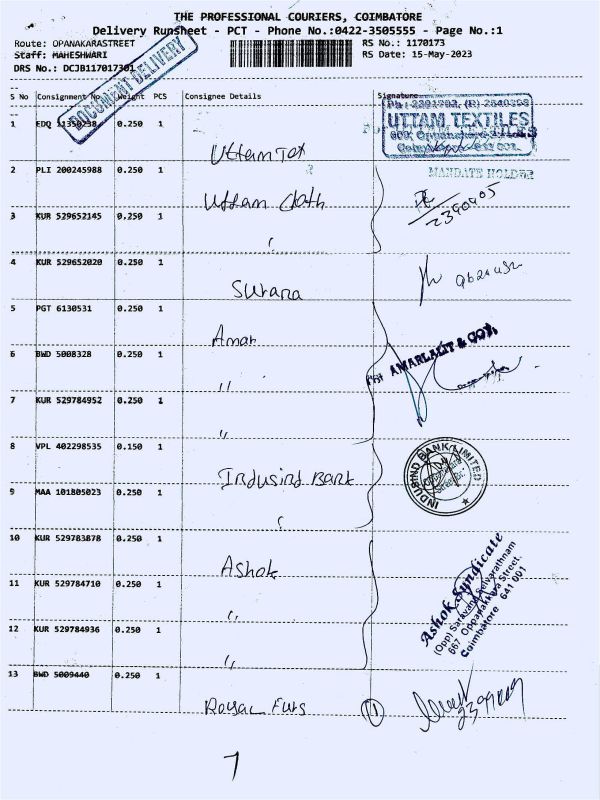 THE PROFESSIONAL COURIERS, COIMBATORE
Delivery Runsheet - PCT - Phone No.:0422-3505555 - Page No.:1
Route: OPANAKARASTREET RS No.: 1170173
Staff: MAHESHWARI RS Date: 15-May-2023
DRS No.: DCJB117017301
DOCUMENT DELIVERY
S No Consignment No Weight PCS Consignee Details Signature
1 EDQ 0.250 1 Uttam Tex
UTTAM TEXTILES
2 PLI 200245988 0.250 1 Uttam Cloth
MANDATE HOLDER
3 KUR 529652145 0.250 1 "
4 KUR 529652020 0.250 1 Surana
5 PGT 6130531 0.250 1 Amar
AMARLALIT & CO
6 BWD 5008328 0.250 1 "
7 KUR 529784952 0.250 1 "
8 VPL 402298535 0.150 1 Indusind Bank
INDUSIND BANK LIMITED
9 MAA 101805023 0.250 1 "
10 KUR 529783878 0.250 1 Ashok
11 KUR 529784710 0.250 1 "
12 KUR 529784936 0.250 1 "
Ashok Syndicate
(Opp) Saravana Selvarathnam
667 Oppanakara Street,
Coimbatore 641 001
13 BWD 5009440 0.250 1 Royal Furs 1
7